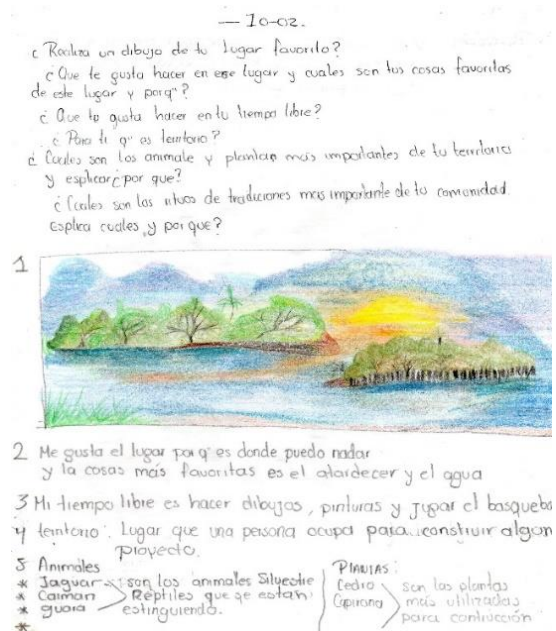 — 10-02.
¿ Realiza un dibujo de tu lugar favorito?
¿ Que te gusta hacer en ese lugar y cuales son tus cosas favoritas
de este lugar y porq"?
¿ Que te gusta hacer en tu tiempo libre?
¿ Para ti q" es territorio?
¿ Cuales son los animale y plantas más importantes de tu territorio
y esplicar ¿por que?
¿ Cuales son los de tradiciones mas importante de tu comunidad.
Esplica cuales, y por que?
1
2 Me gusta el lugar por q' es donde puedo nadar
y la cosas más favoritas es el atardecer y el agua
3 Mi tiempo libre es hacer dibujos, pinturas y jugar el basquetb
4 territorio: Lugar que una persona ocupa para construir algun
proyecto.
5 Animales
* Jaguar son los animales Silvestre
* Caiman Reptiles que se estan
* guara estinguiendo.
*
PlANTAS:
Cedro son las plantas
Capirona más utilizadas
para contrucción